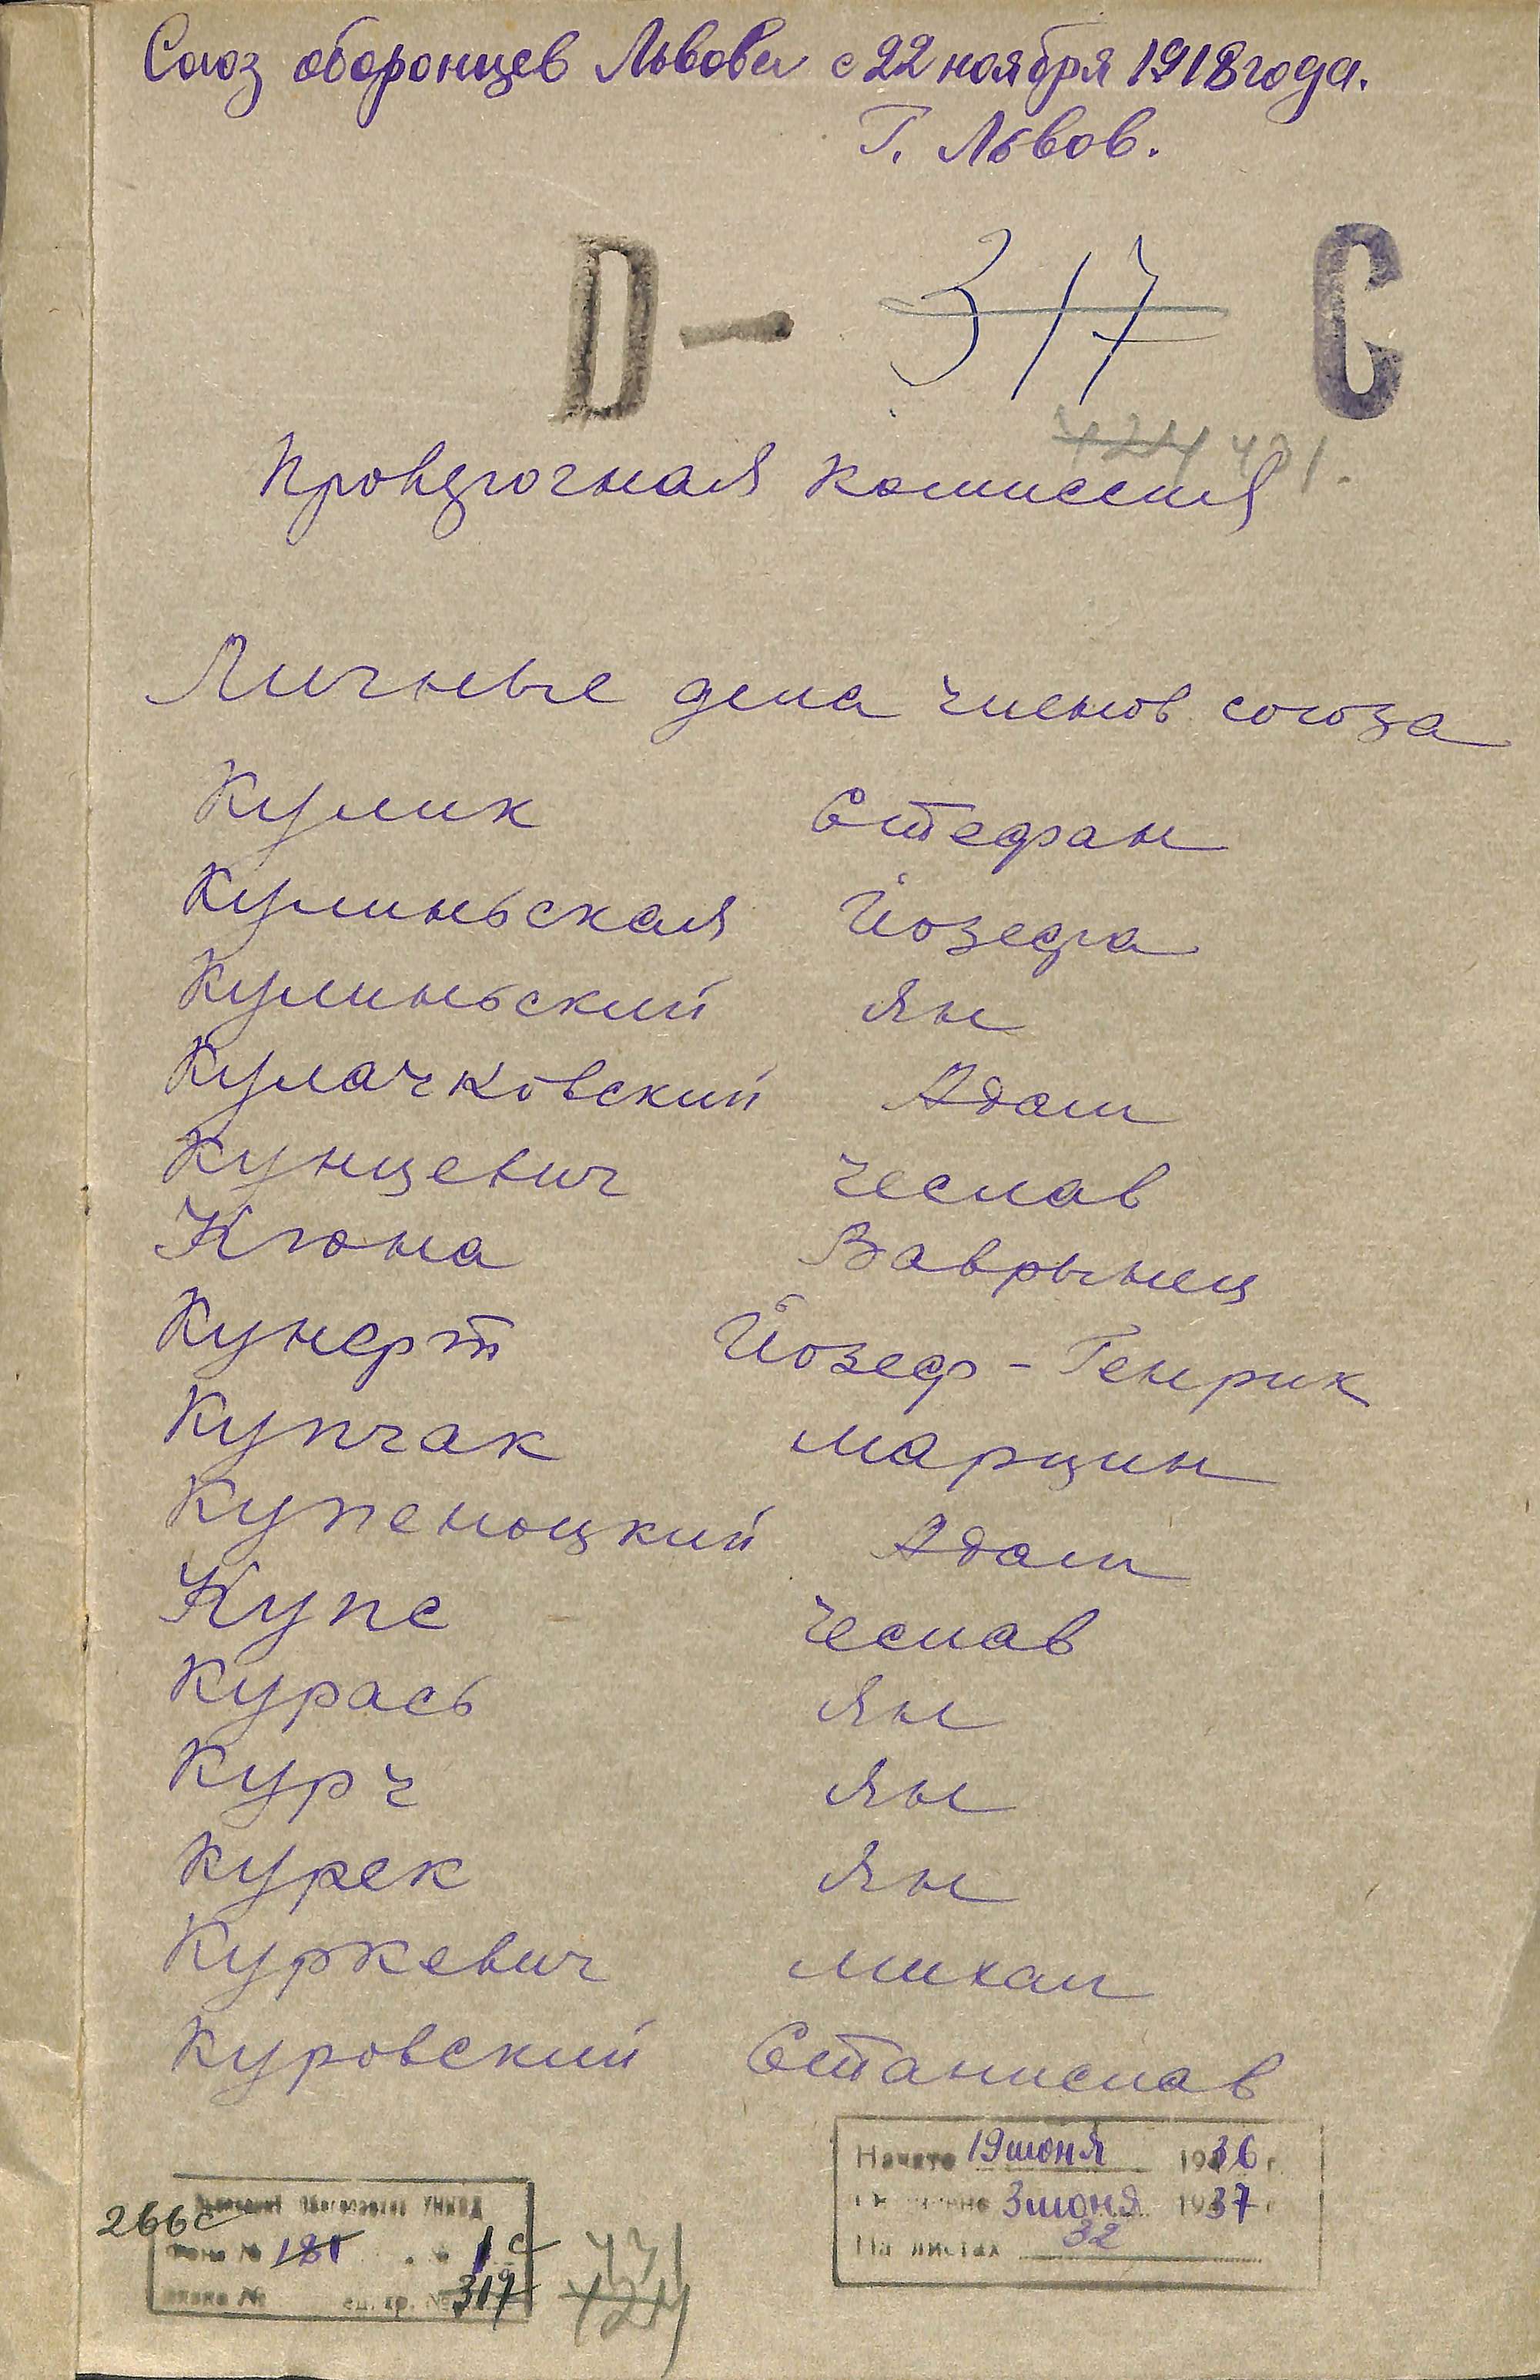 Союз оборонцев Львова с 22 ноября 1918 года.
Г. Львов.
D — 317 C
424 431.
Комиссия
Личные дела членов союза
Кулик Стефан
Кулиньская Йозефа
Кулиньский Ян
Кулачковский Адам
Кунцевич Чеслав
Кюна Ваврынец
Кунерт Йозеф - Генрик
Купчак Марцин
Купеноцкий Адам
Купс Чеслав
Курась Ян
Курч Ян
Курек Ян
Куркевич Михал
Куровский Станислав
Начато 19 июня 1936 г.
3 июня 1937 г.
На листах 32
266с
181 1 с
ед. хр. № 317
431
424